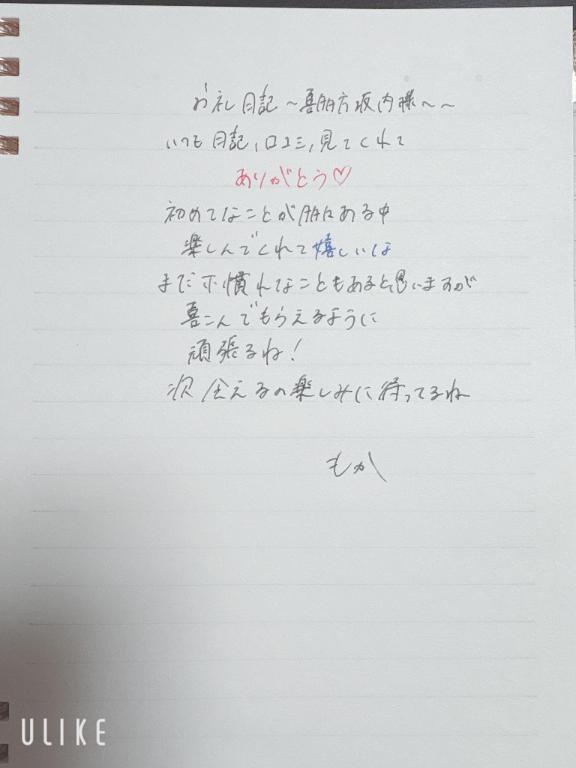 お礼日記～喜多方坂内様へ～
いつも日記,口コミ,見てくれて
ありがとう♡
初めてなことが多々ある中
楽しんでくれて嬉しいな
まだ不慣れなこともあると思いますが
喜こんでもらえるように
頑張るね！
次会えるの楽しみに待ってるね
もか
ULIKE